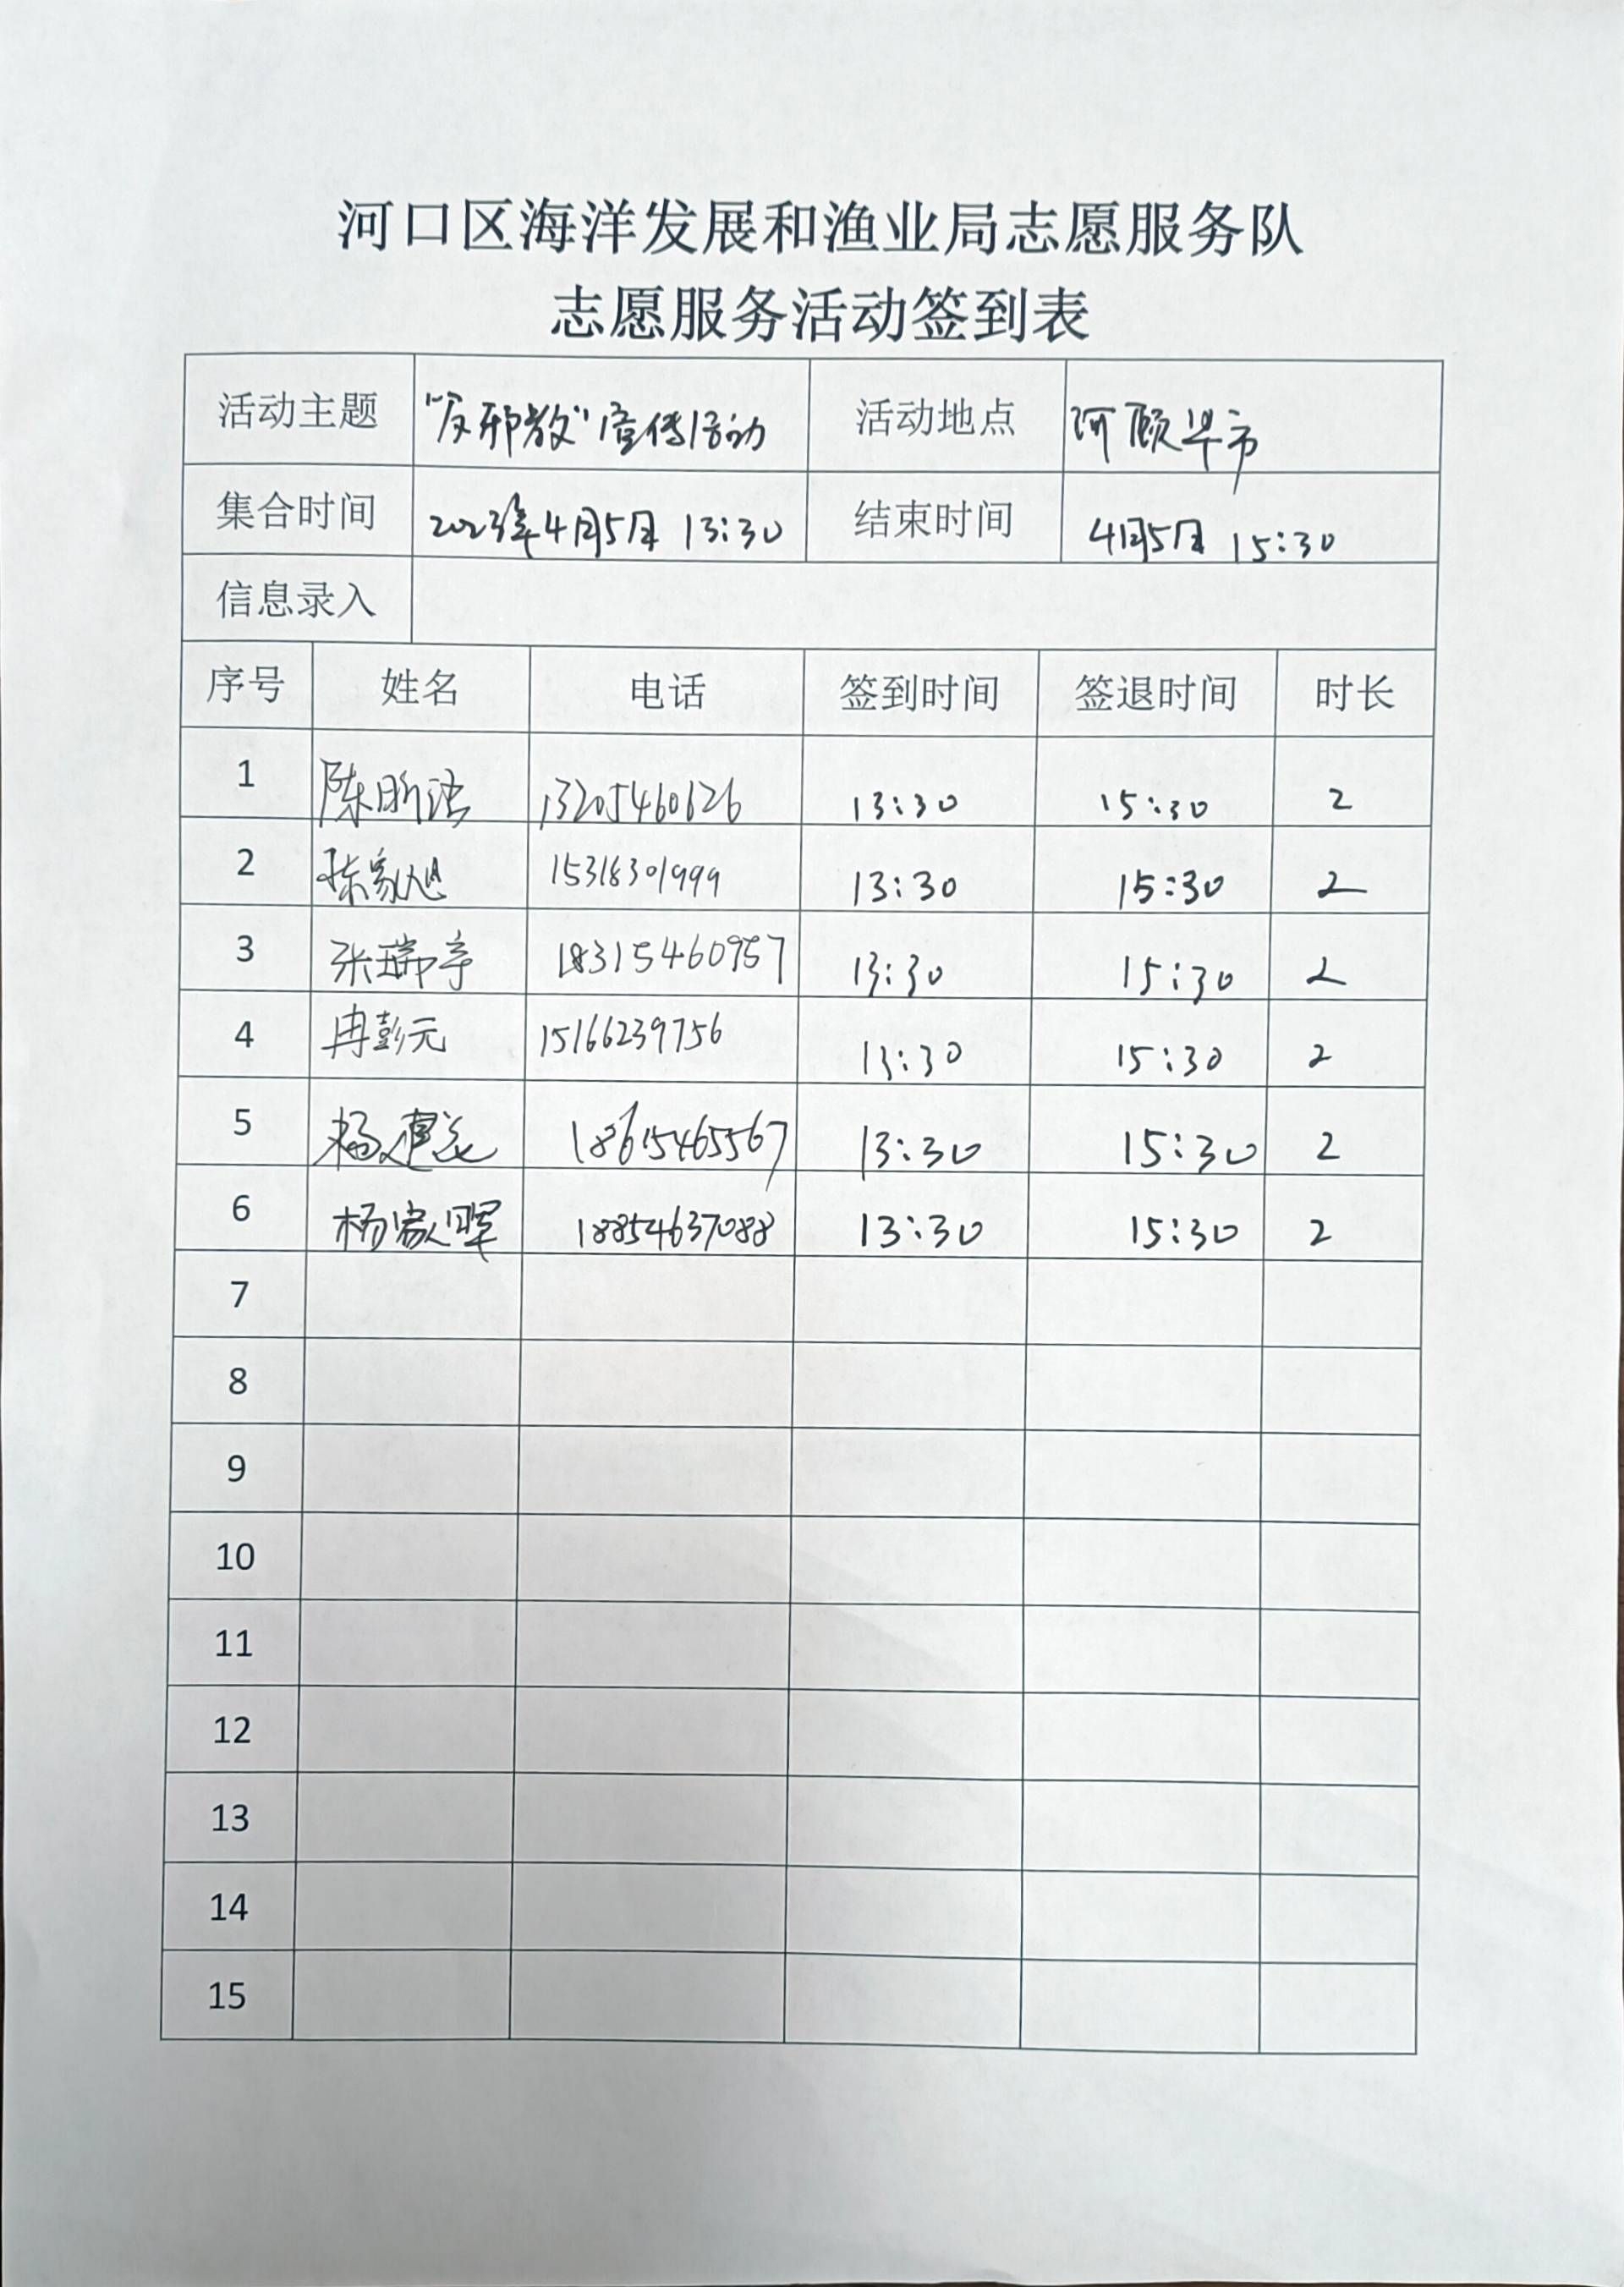 河口区海洋发展和渔业局志愿服务队
志愿服务活动签到表
活动主题 "反邪教"宣传活动 活动地点 河颐早市
集合时间 2023年4月5日 13:30 结束时间 4月5日 15:30
信息录入
序号 姓名 电话 签到时间 签退时间 时长
1 陈昕浩 13205460626 13:30 15:30 2
2 陈家旭 15318301999 13:30 15:30 2
3 张瑞亭 18315460957 13:30 15:30 2
4 冉彭元 15166239756 13:30 15:30 2
5 杨建 18615465567 13:30 15:30 2
6 杨家晖 18854637088 13:30 15:30 2
7
8
9
10
11
12
13
14
15